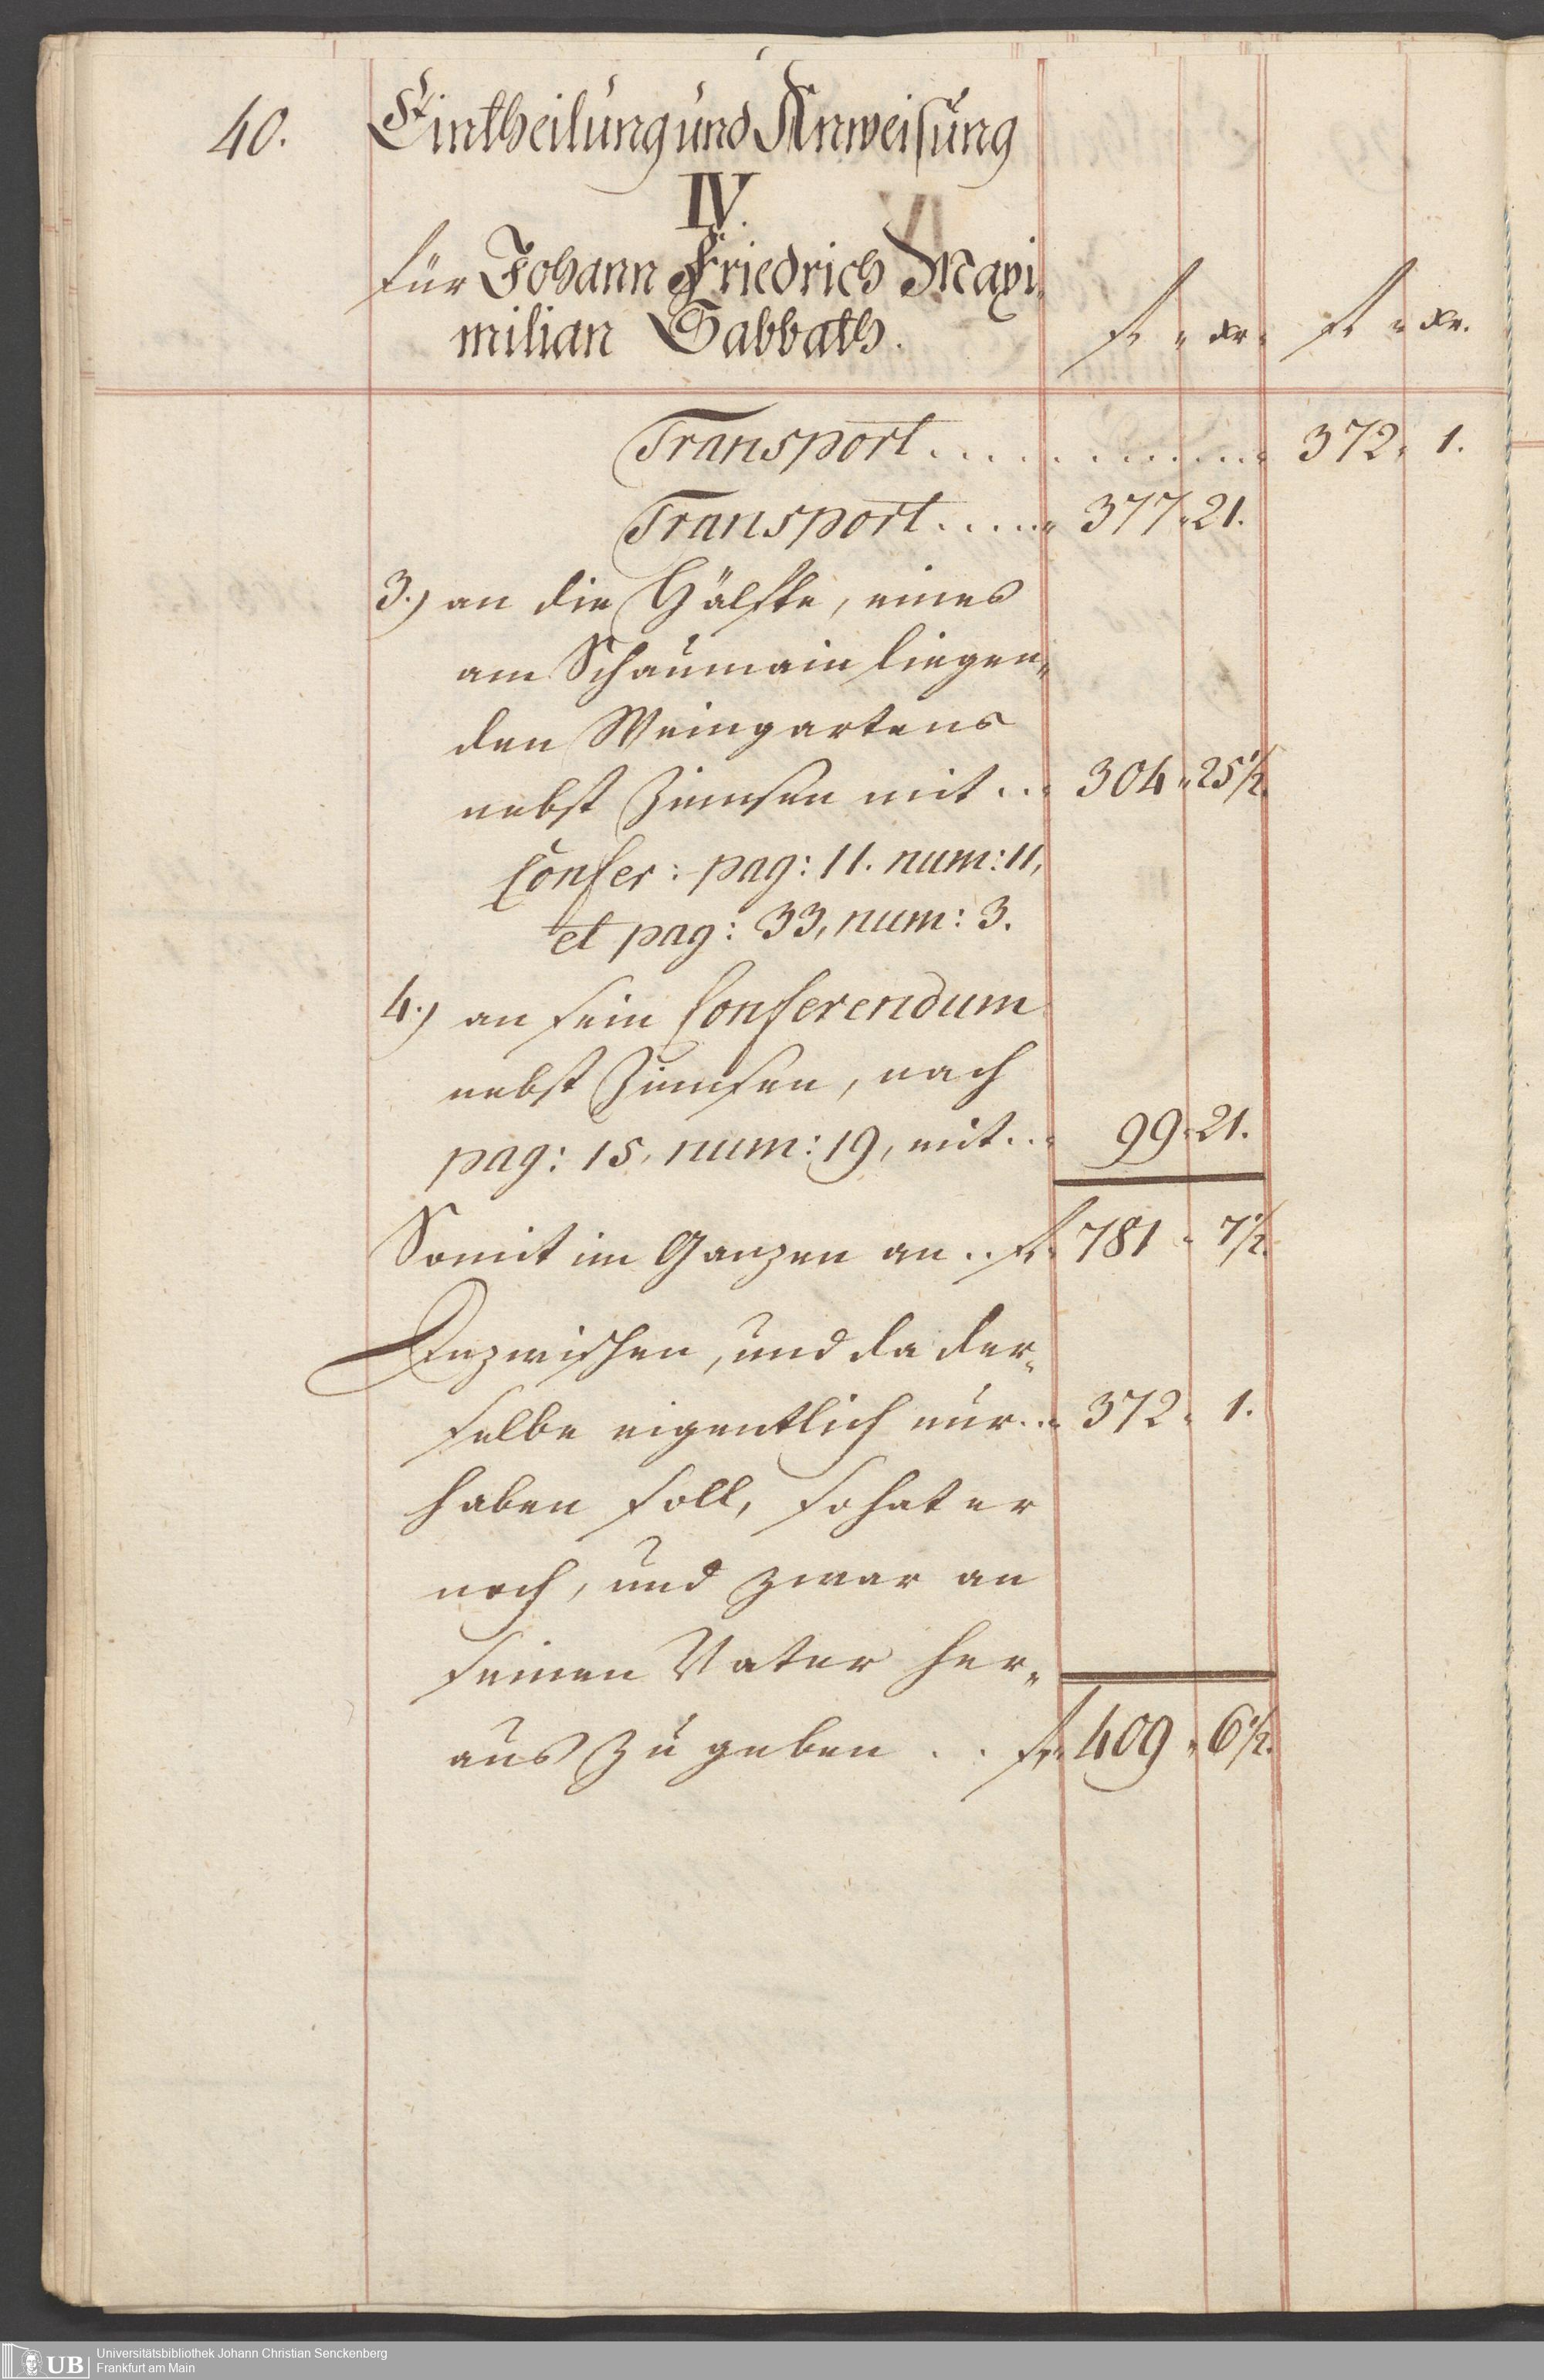 40.
Eintheilung und Anweisung
IV.
für Johann Friedrich Maxi„
milian Sabbath.
fl „ xr. fl „ xr.
Transport . . . . . . . . . . . . 372. 1.
Transport . . . . . „ 377 „ 21.
3.) an die Hälfte, eines
am Schaumain liegen„
den Weingartens
nebst Zinnsen mit . . „ 304 „ 25 1/2.
Confer: pag: 11. num: 11,
et pag: 33, num: 3.
4.) an sein Conferendum
nebst Zinnsen, nach
pag: 15, num: 19, mit . . „ 99 „ 21.
Somit im Ganzen an . . fl. 781 „ 7 1/2.
Inzwischen, und da der„
selbe eigentlich nur . . „ 372 „ 1.
haben soll, so hat er
noch, und zwar an
seinen Vater her„
aus zu geben . . fl. 409 „ 6 1/2.
UB
Universitätsbibliothek Johann Christian Senckenberg
Frankfurt am Main